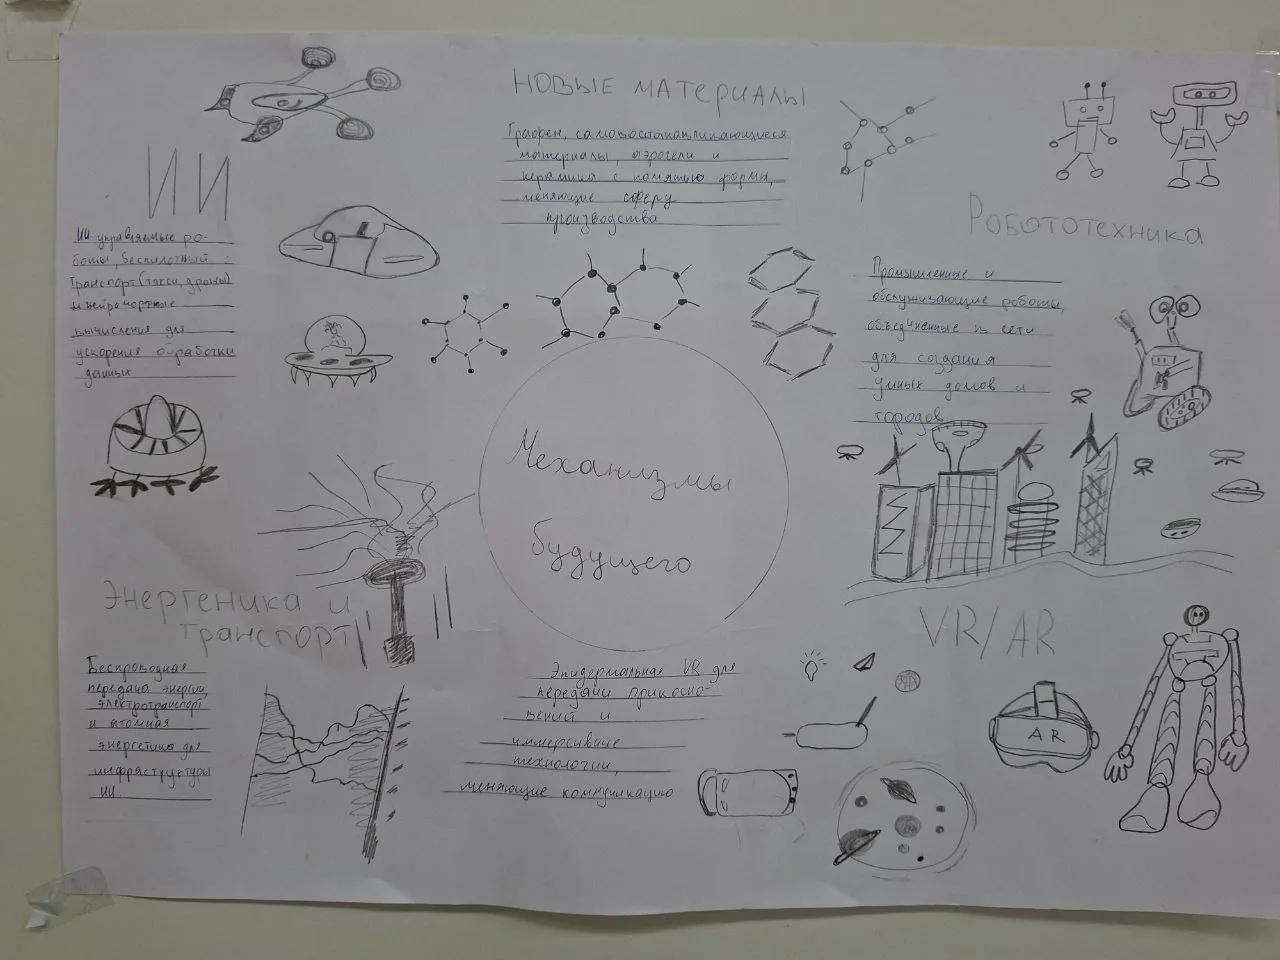 НОВЫЕ МАТЕРИАЛЫ
Графен, самовосстанавливающиеся
материалы, аэрогели и
керамика с памятью формы,
меняющие сферу
производства
ИИ
ИИ-управляемые ро-
боты, беспилотный
транспорт (такси, дроны)
и нейроморфные
вычисления для
ускорения обработки
данных
Робототехника
Промышленные и
обслуживающие роботы,
объединённые в сети
для создания
умных домов и
городов
Механизмы
будущего
Энергетика и
транспорт
Беспроводная
передача энергии,
электротранспорт
и атомная
энергетика для
инфраструктуры
ИИ.
VR/AR
Эпидермальная VR для
передачи прикосно-
вений и
иммерсивные
технологии,
меняющие коммуникацию
AR